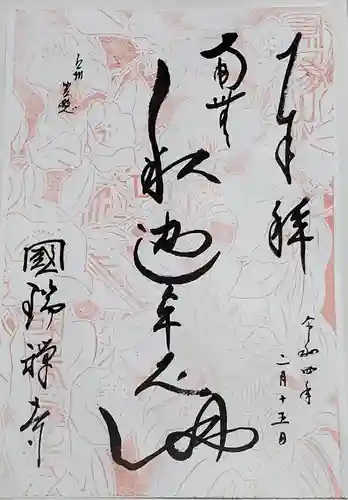 奉拝
令和四年
二月十五日
南無
釈迦牟尼仏
國瑞禅寺